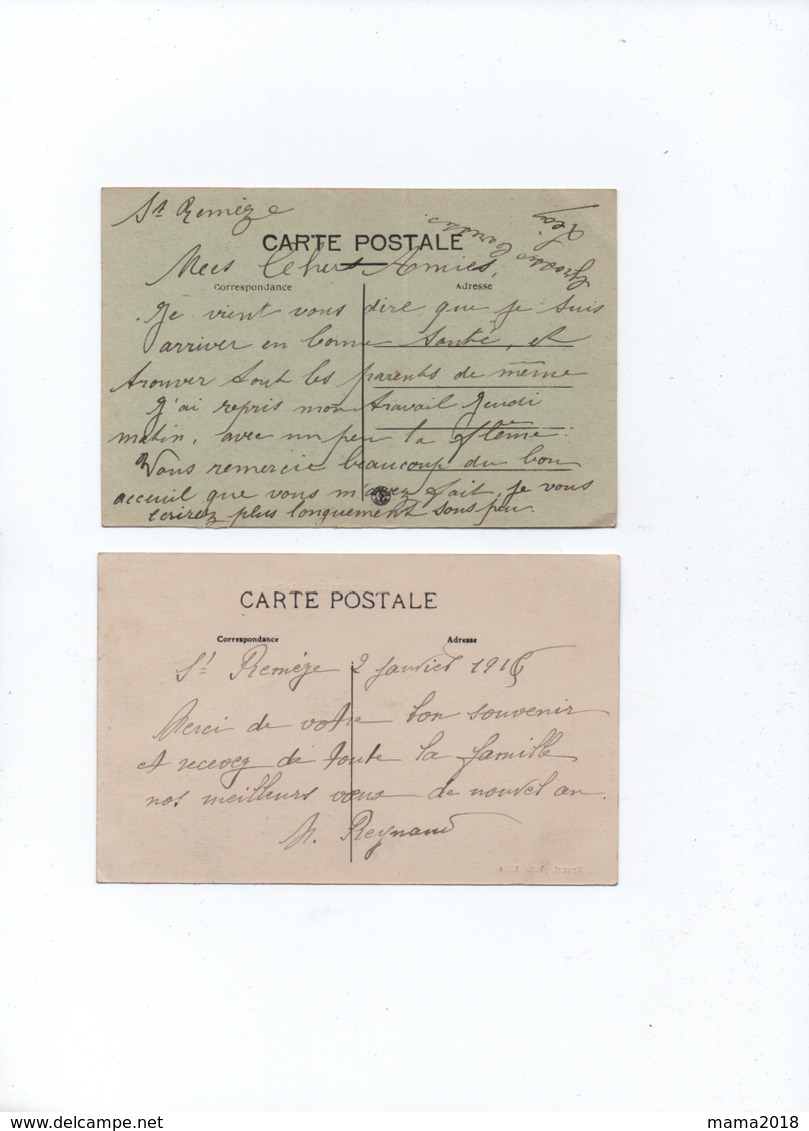 St Remèze
CARTE POSTALE
Mees Chers Amies,
Correspondance
Adresse
Je vient vous dire que je suis
arriver en bonne Santé, et
trouver tout les parents de même
J'ai repris mon travail Jeudi
matin, avec un peu la flème.
Vous remercie beaucoup du bon
acceuil que vous m'avez fait, je vous
écrirez plus longuement sous peu.
CARTE POSTALE
Correspondance
Adresse
St Remèze 2 Janvier 1915
Merci de votre bon souvenir
et recevez de toute la famille
nos meilleurs vœux de nouvel an.
Reynaud
mama2018